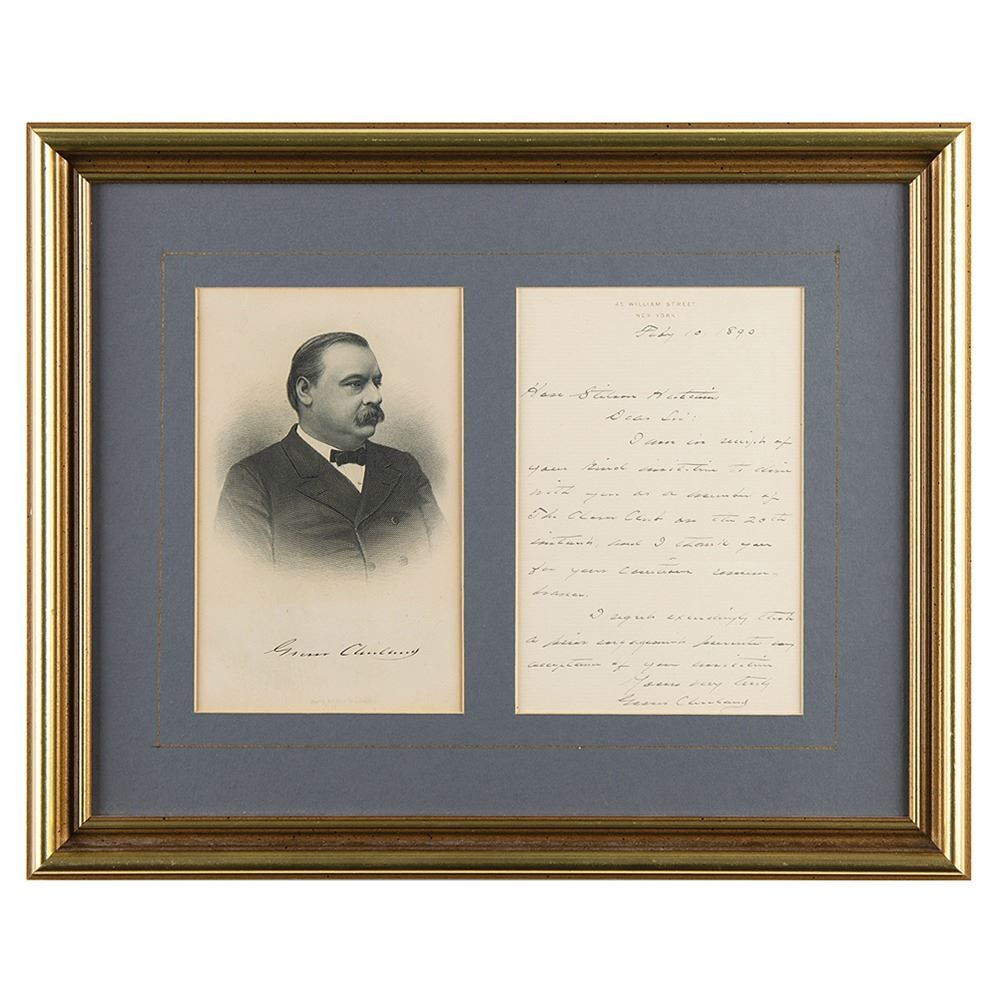 Grover Cleveland
45 WILLIAM STREET.
NEW YORK.
Feby 10. 1890
Hon Stilson Hutchins
Dear Sir:
I am in receipt of
your kind invitation to dine
with you as a member of
The Clover Club on the 20th
instant, and I thank you
for your courteous remem-
brance.
I regret exceedingly that
a prior engagement prevents my
acceptance of your invitation
Yours very truly
Grover Cleveland